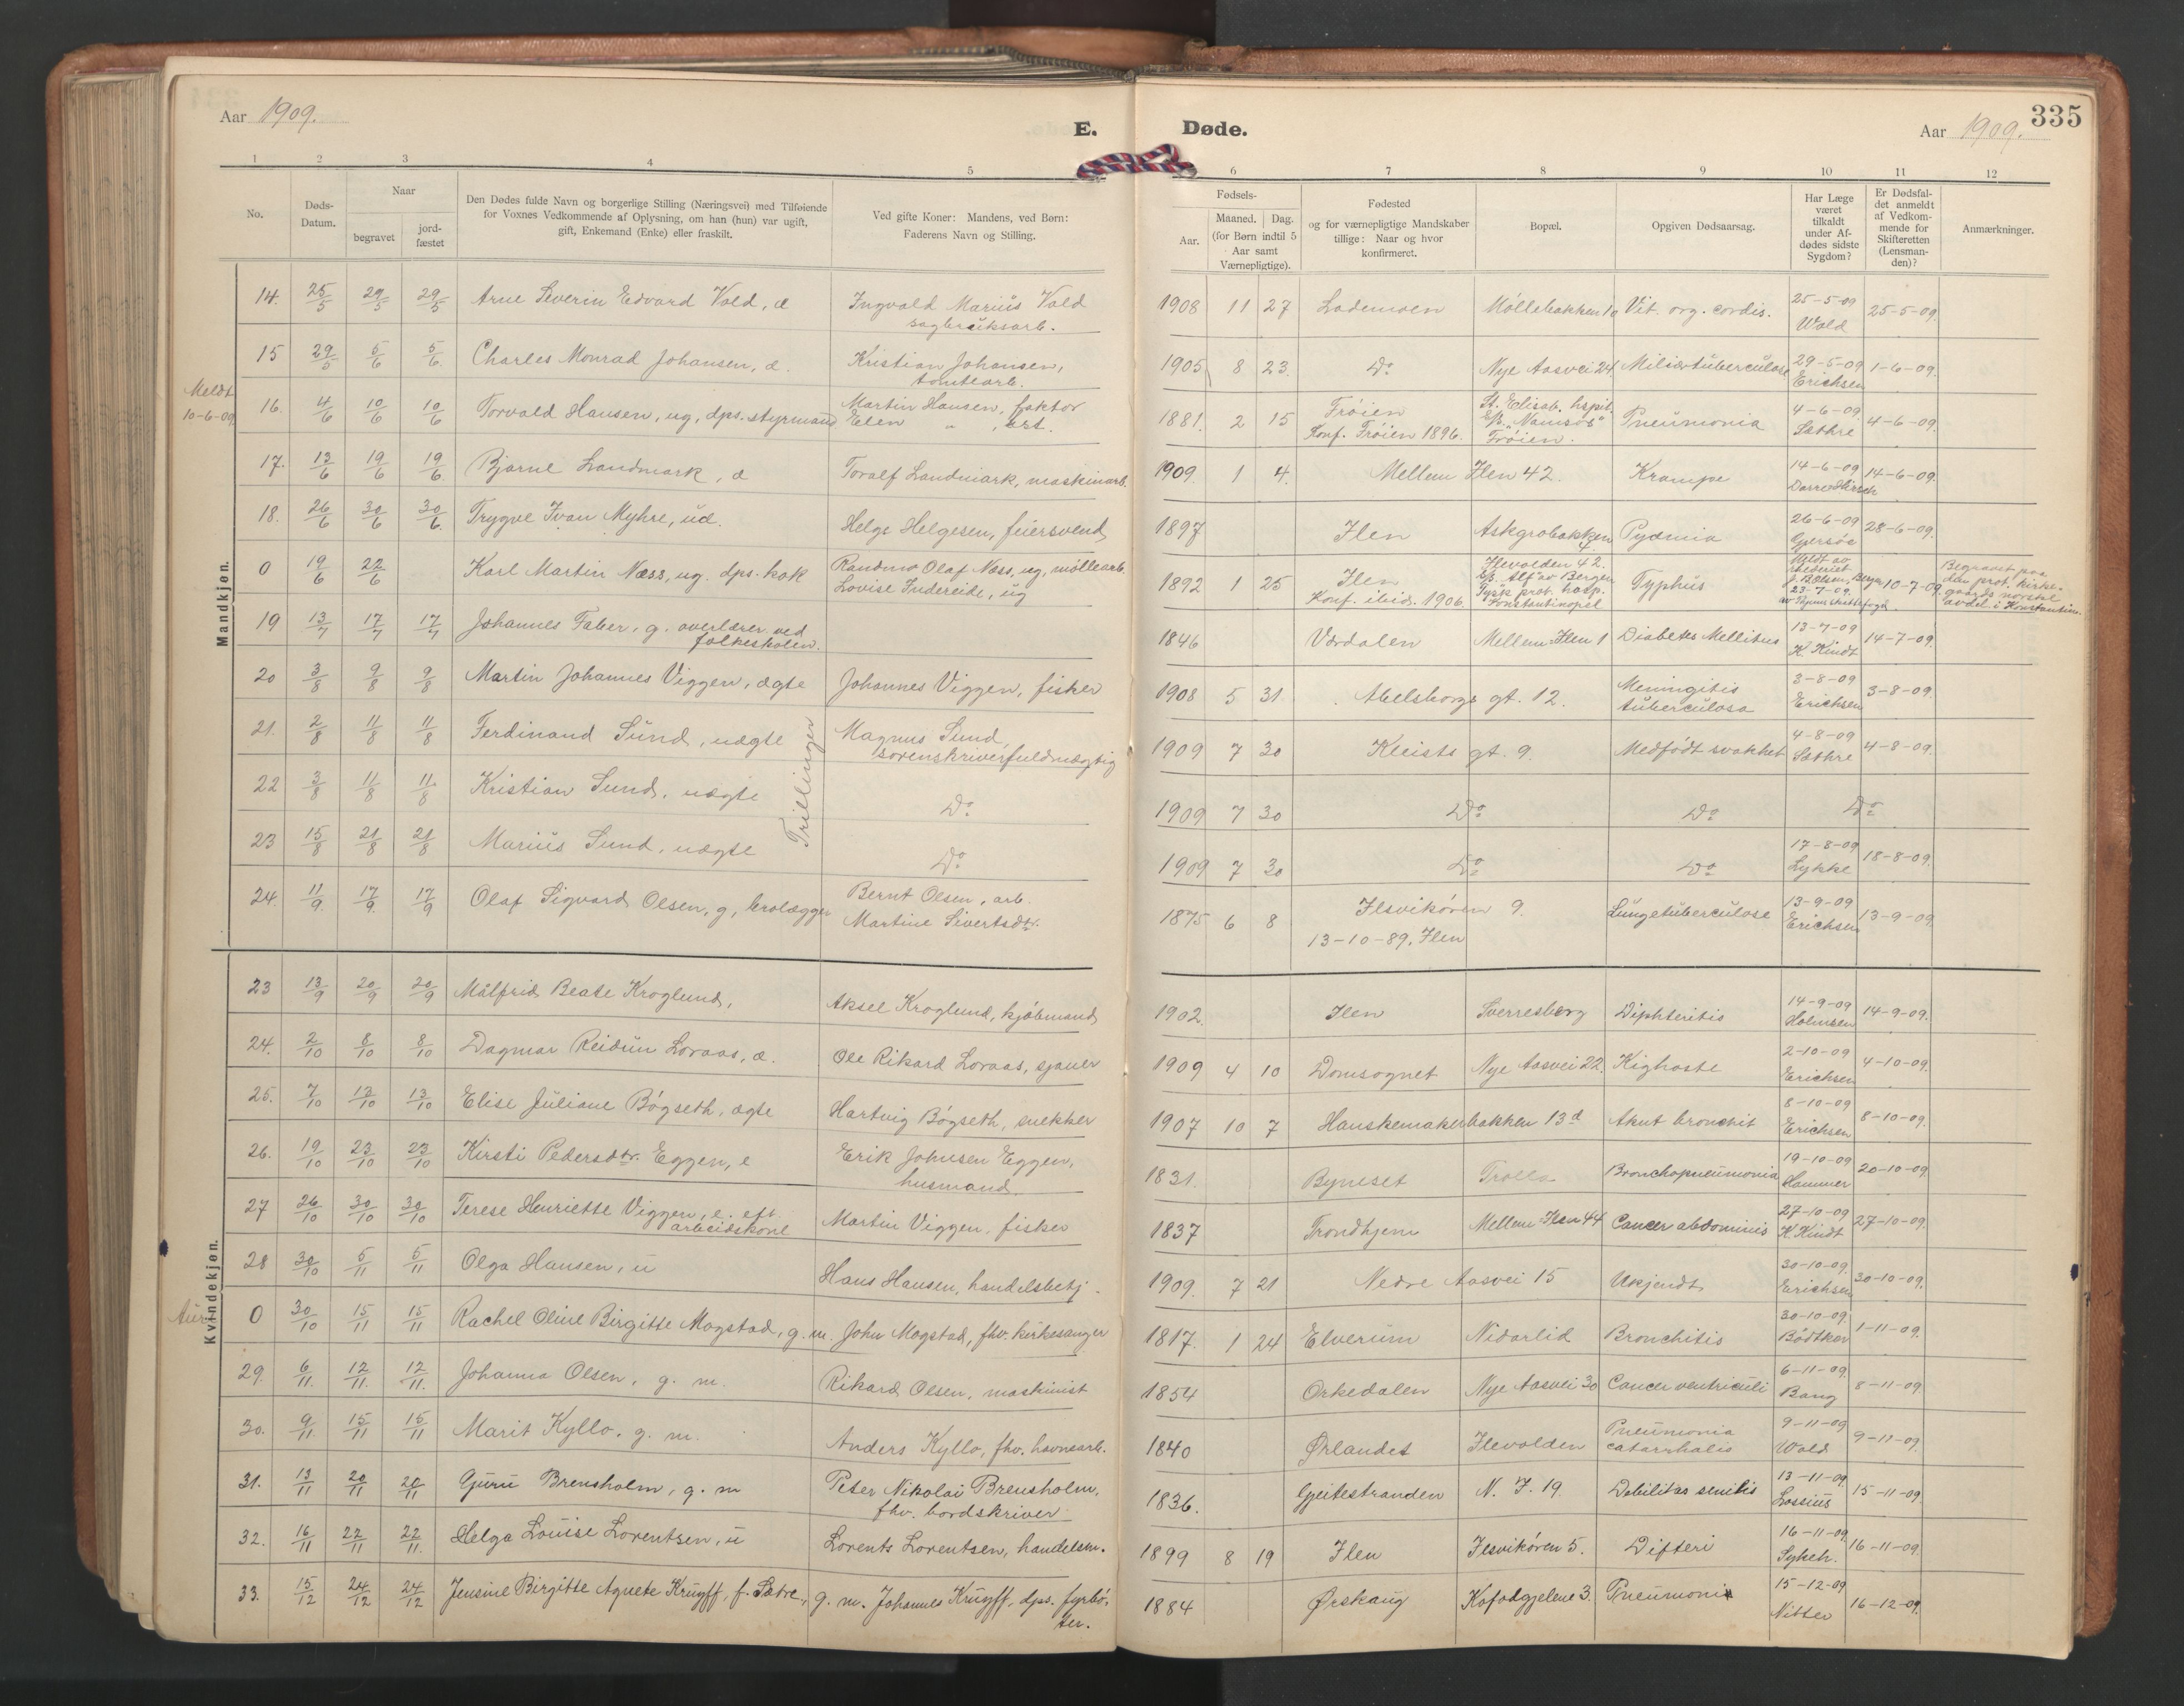 Aar 1909.
E.
Døde.
Aar 1909.
335
1 2 3 4 5 6 7 8 9 10 11 12
No.
Døds-
Datum.
Naar
begravet
jord-
fæstet
Den Dødes fulde Navn og borgerlige Stilling (Næringsvei) med Tilføiende
for Voxnes Vedkommende af Oplysning, om han (hun) var ugift,
gift, Enkemand (Enke) eller fraskilt.
Ved gifte Koner: Mandens, ved Børn:
Faderens Navn og Stilling.
Fødsels-
Aar.
Maaned. Dag.
(for Børn indtil 5
Aar samt
Værnepligtige).
Fødested
og for værnepligtige Mandskaber
tillige: Naar og hvor
konfirmeret.
Bopæl.
Opgiven Dødsaarsag.
Har Læge
været
tilkaldt
under Af-
dødes sidste
Sygdom?
Er Dødsfal-
det anmeldt
af Vedkom-
mende for
Skifteretten
(Lensman-
den)?
Anmærkninger.
Mandkjøn.
14. 25/5 29/5 29/5 Arne Severin Edvard Vold, æ Ingvald Marius Vold
sagbruksarb.
1908 11 27 Lademoen Møllebakken 10 Vit. org. cordis. 25-5-09 25-5-09.
Wold
15 29/5 5/6 5/6. Charles Monrad Johansen, æ. Kristian Johansen,
tomtearb.
1905 8 23. Do Nye Aasvei 24 Miliærtuberculose 29-5-09 1-6-09.
Erichsen
Meldt
10-6-09
16. 4/6 10/6 10/6 Torvald Hansen, ug, dps. styrmand Martin Hansen, faktor
Elen " , ært.
1881. 2 15 Frøien St. Elisab. hspit. Pneumonia 4-6-09. 4-6-09.
Konf. Frøien 1896. "Namsos" Sæthre
Frøien.
17. 13/6 19/6 19/6. Bjarne Landmark, æ Toralf Landmark, maskinarb.
1909. 1 4. Mellem Ilen 42. Krampe 14-6-09 14-6-09.
18. 26/6 30/6 30/6. Trygve Ivan Myhre, uæ. Helge Helgesen, feiersvend
1897 Ilen Askgrobakken Pyæmia 26-6-09 28-6-09.
4. Gjersøe
0 19/6 22/6 Karl Martin Næss, ug. dps. kok Randmo Olaf Næss, ug, møllearb.
Lovise Indereide, ug
1892 1 25 Ilen Ilevolden 42. Typhus Meldt av 10-7-09. Begravet paa
Konf. ibid. 1906. Alf av Bergen rederiet den prot. kirke-
Tysk prot. hosp. 23-7-09. gaards norske
Konstantinopel avdel. i Konstantin.
19 13/7 17/7 17/7 Johannes Faber, g. overlærer ved
folkeskolen.
1846 Værdalen Mellem Ilen 1 Diabetes Mellitus 13-7-09 14-7-09.
K. Kindt
20 3/8 9/8 9/8 Martin Johannes Viggen, ægte Johannes Viggen, fisker
1908 5 31. Abelsborgs gt. 12. Meningitis 3-8-09 3-8-09.
tuberculosa Erichsen
21. 2/8 11/8 11/8 Ferdinand Sund, uægte Magnus Sund
sorenskriverfuldmægtig
Trillinger
1909 7 30 Kleists gt. 9. Medfødt svakhet 4-8-09 4-8-09.
Sæthre
22 3/8 11/8 11/8 Kristian Sund, uægte Do
1909 7 30 Do Do Do
23 15/8 21/8 21/8 Marius Sund, uægte Do
1909 7 30 Do Do 17-8-09 18-8-09.
Lykke
24. 11/9. 17/9. 17/9 Olaf Sigvard Olsen, g, brolægger Bernt Olsen, arb.
Martine Sivertsdtr.
1875 6 8 Ilsvikøren 9. Lungetuberculose 13-9-09 13-9-09.
13-10-89, Ilen Erichsen
Kvindekjøn.
23 13/9 20/9 20/9 Målfrid Beate Kroglund, Aksel Kroglund, kjøbmand
1902. Ilen Sverresborg Diphteritis 14-9-09 14-9-09.
Holmsen
24. 2/10 8/10 8/10 Dagmar Reidun Loraas, æ. Ole Rikard Loraas, sjauer
1909 4 10 Domsognet Nye Aasvei 22. Kighoste 2-10-09 4-10-09.
Erichsen
25. 7/10 13/10 13/10 Elise Juliane Bøgseth, ægte Hartvig Bøgseth, snekker
1907 10 7 Hanskemakerbakken 13d Akut bronchit 8-10-09 8-10-09.
Erichsen
26. 19/10 23/10 23/10 Kirsti Pedersdtr. Eggen, e Erik Johnsen Eggen,
husmand.
1831. Byneset Trolla Bronchopneumonia 19-10-09 20-10-09.
Hammer
27 26/10 30/10 30/10 Terese Henriette Viggen, e. eft. Martin Viggen, fisker
arbeidskone
1837 Trondhjem Mellem Ilen 44 Cancer abdominis 27-10-09 27-10-09.
K. Kindt
28 30/10 5/11 5/11 Olga Hansen, u Hans Hansen, handelsbetj.
1909. 7 21 Nedre Aasvei 15 Ukjendt 30-10-09. 30-10-09.
Erichsen
0 30/10 15/11 15/11 Rachel Oline Birgitte Mogstad, g. m. John Mogstad, fhv. kirkesanger
1817. 1 24 Elverum Nidarlid Bronchitis 30-10-09. 1-11-09.
Bødtker
29. 6/11. 12/11. 12/11. Johanna Olsen, g. m. Rikard Olsen, maskinist
1854 Orkedalen Nye Aasvei 30 Cancer ventriculi 6-11-09. 8-11-09.
Bang
30. 9/11. 15/11 15/11 Marit Kyllo, g. m. Anders Kyllo, fhv. havnearb.
1840 Ørlandet Ilevolden Pneumonia 9-11-09 9-11-09.
catarrhalis Wold
31. 13/11 20/11 20/11 Guru Brensholm, g. m Peter Nikolai Brensholm,
fhv. bordskriver
1836. Geitestranden N. I. 19. Debilitas senilis 13-11-09. 15-11-09.
Lossius
32. 16/11 22/11 22/11. Helga Louise Lorentsen, u Lorents Lorentsen, handelsm.
1899 8 19 Ilen Ilsvikøren 5. Difteri 16-11-09. 16-11-09.
Sykeh.
33. 15/12 24/12 24/12 Jensine Birgitte Agnete Kruyff, f. Sætre, g. m. Johannes Kruyff, dps. fyrbø-
ter.
1884 Ørskaug Kofodgjelene 3. Pneumoni 15-12-09 16-12-09.
Nitter